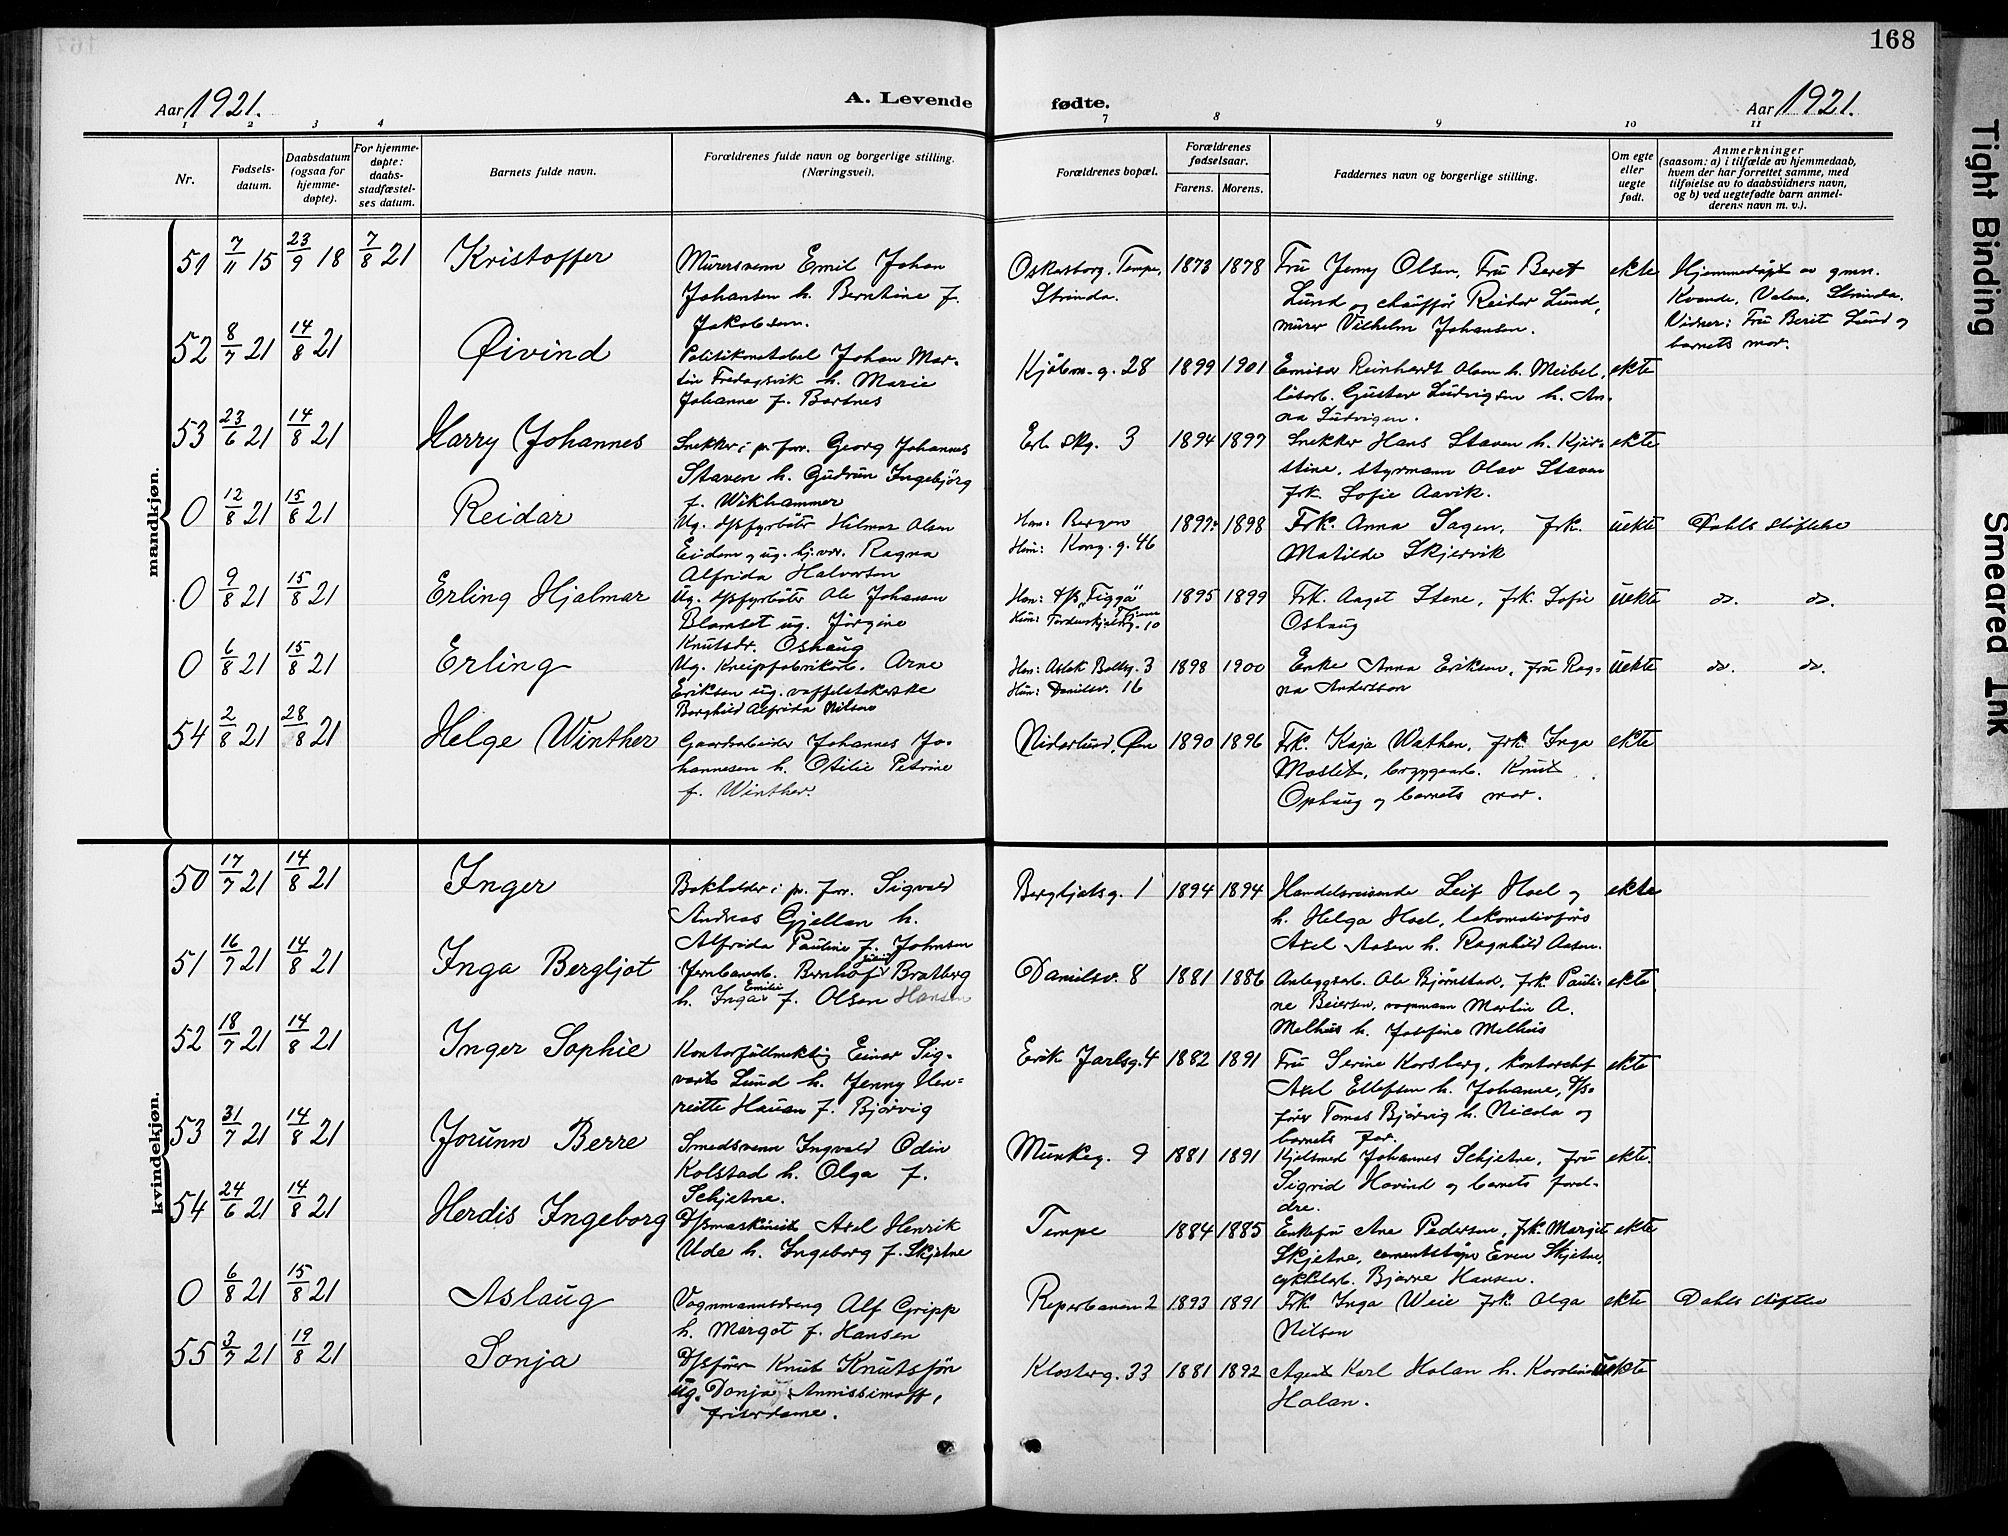 168
Aar 1921. A. Levende fødte. Aar 1921.
1 2 3 4 7 8 9 10 11
Nr.
Fødsels-
datum.
Daabsdatum
(ogsaa for
hjemme-
døpte).
For hjemme-
døpte:
daabs-
stadfæstel-
ses datum.
Barnets fulde navn.
Forældrenes fulde navn og borgerlige stilling.
(Næringsvei).
Forældrenes bopæl.
Forældrenes
fødselsaar.
Farens. Morens.
Faddernes navn og borgerlige stilling.
Om egte
eller
uegte
født.
Anmerkninger
(saasom: a) i tilfælde av hjemmedaab,
hvem der har forrettet samme, med
tilføielse av to daabsvidners navn,
og b) ved uegtefødte barn anmel-
derens navn m. v.).
mandkjøn.
51 7/11 15 23/9 18 7/8 21 Kristoffer
Mürersvenn Emil Johan
Johansen h. Berntine f.
Jakobsen.
Oskarsborg. Tempe,
Strinda.
1873 1878
Frü Jenny Olsen, Frü Beret
Lünd og chauffør Reidar Lünd,
mürer Vilhelm Johansen.
ekte
Hjemmedøpt av gmn.
Kvande, Valene, Strinda.
Vidner: Frü Berit Lünd og
barnets mor.
52 8/7 21 14/8 21 Øivind
Politikonstabel Johan Mar-
tin Fredagsvik h. Marie
Johanne f. Bartnes
Kjøbm.g. 28 1899 1901
Emisær Reinhardt Olsen h. Meibel,
løsarb. Güstav Lüdvigsen h. An-
na Lüdvigsen.
ekte
53 23/6 21 14/8 21 Harry Johannes
Snekker i p. forr. Georg Johannes
Staven h. Güdrün Ingebjörg
f. Wikhammer
Erl. Skg. 3 1894 1897
Snekker Hans Staven h. Kjer-
stine, styrmann Olav Staven
frk. Sofie Aavik.
ekte
0 12/8 21 15/8 21 Reidar
Ug. d/s fyrbøter Hilmar Olsen
Eidem og ug. hj.vær. Ragna
Alfrida Halvorsen
Han: Bergen
Hün: Kong. g. 46
1899 1898
Frk. Anna Sagen, frk.
Matilde Skjervik
üekte Dahls stiftelse
0 9/8 21 15/8 21 Erling Hjalmar
Ug. d/s fyrbøter Ole Johansen
Blomset ug. Jørgine
Knütsdr. Oshaug
Han: d/s "Tigga"
1895 1899
Frk. Aagot Stene, frk. Sofie
Oshaug
üekte do. do.
0 6/8 21 15/8 21 Erling
Ug. Kneipfabrikarb. Arne
Eriksen ug. vaffelstekerske
Borghild Alfrida Nilsen
Han: Aslak Boltsg. 3
Hün: Danielsv. 16
1898 1900
Enke Anna Eriksen, frü Rag-
na Andersson
üekte do. do.
54 2/8 21 28/8 21 Helge Winther
Gaardsarbeider Johannes Jo-
hannesen h. Otilie Petrine
f. Winther.
Nidarlund, Øen 1890 1896
Frk. Kaja Wathen, frk. Inga
Moslet, bryggearb. Knut
Ophaug og barnets mor.
ekte
kvindekjøn.
50 17/7 21 14/8 21 Inger
Bokholder i p. forr. Sigvald
Andreas Gjellan h.
Alfrida Pauline f. Johnsen
Bergljotsg. 1 1894 1894
Handelsreisende Leif Hoel og
h. Helga Hoel, lokomotivförer
Axel Aasen h. Ragnhild Aasen.
ekte
51 16/7 21 14/8 21 Inga Bergljot
Jernbanearb. Bernhof Julius Bratberg
h. Inga Emilie f. Olsen Hansen
Danielsv. 8 1881 1886
Anleggsarb. Ole Bjørnstad, frk. Pauli-
ne Beiersen, vognmann Martin A.
Melhüs h. Josefine Melhüs
ekte
52 18/7 21 14/8 21 Inger Sophie
Kontorfüllmektig Einar Sig-
vart Lünd h. Jenny Hen-
reitte Hauan f. Bjørvig
Erik Jarlsg. 4 1882 1891
Frü Serine Korsberg, kontorchef
Axel Ellefsen h. Johanne, d/s.
fører Tomas Bjørvig h. Nicola og
barnets far.
ekte
53 31/7 21 14/8 21 Jorünn Berre
Smedsvenn Ingvald Odin
Kolstad h. Olga f.
Schjetne.
Münkeg. 9 1881 1891
Kjelsmed Johannes Schjetne, frü
Sigrid Hovind og barnets forel-
dre.
ekte.
54 24/6 21 14/8 21 Herdis Ingeborg
D/s maskinist Axel Henrik
Ude h. Ingeborg f. Skjetne
Tempe 1884 1885
Enkefrü Ane Pedersen, frk. Margit
Skjetne, cementstöper Even Skjetne,
cykkelarb. Bjarne Hansen.
ekte
0 6/8 21 15/8 21 Aslaüg
Vognmannsdreng Alf Gripp
h. Margot f. Hansen
Reperbanen 2 1893 1891
Frk. Inga Weie frk. Olga
Nilsen
ekte Dahls stiftelse
55 3/7 21 19/8 21 Sonja
D/s fører Knüt Knütssön
üg. Donja Annissimoff,
friserdame.
Klosterg. 33 1881 1892
Agent Karl Holan h. Karoline
Holan.
üekte
Tight Binding
Smeared Ink